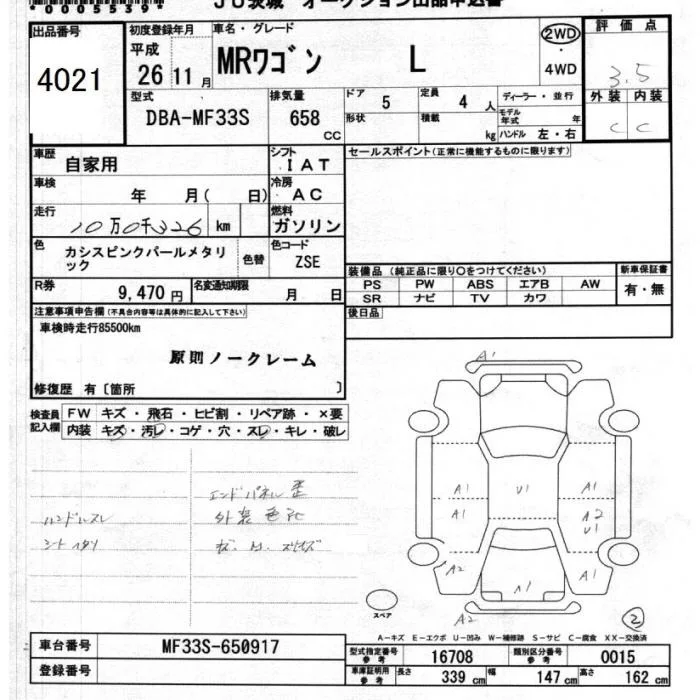 00055 39*
JU茨城 オークション出品申込書
出品番号
4021
初度登録年月
平成
26 11月
車名・グレード
MRワゴン L
2WD
4WD
評価点
3.5
外装 内装
C C
型式
DBA-MF33S
排気量
658
CC
ドア 5
形状
定員 4 人
積載 kg
ディーラー・並行
モデル年式 年
ハンドル 左・右
車歴
自家用
シフト
IAT
セールスポイント(正常に機能するものに限ります)
車検
年 月( 日)
冷房
AC
走行
10万0千326 km
燃料
ガソリン
色
カシスピンクパールメタリック
色替
色コード
ZSE
R券
9,470円
名変通知期限
月 日
装備品 (純正品に限り〇をつけてください)
PS PW ABS エアB AW
SR ナビ TV カワ
新車保証書
有・無
後日品
注意事項申告欄(不具合内容等は具体的に記入して下さい)
車検時走行85500km
原則ノークレーム
修復歴 有〔箇所 〕
検査員記入欄
FW キズ・飛石・ヒビ割・リペア跡・×要
内装 キズ・汚レ・コゲ・穴・スレ・キレ・破レ
エンドパネル歪
ハンドルスレ
外装色アセ
A1
A1
A1
U1
A1
A1
A2
U1
A2
A1
A1
A2
スペア
2
A-キズ E-エクボ U-凹み W-補修跡 S-サビ C-腐食 XX-交換済
車台番号
MF33S-650917
登録番号
型式指定番号 参考
16708
類別区分番号 参考
0015
車庫証明用 参考
長さ 339 cm
幅 147 cm
高さ 162 cm